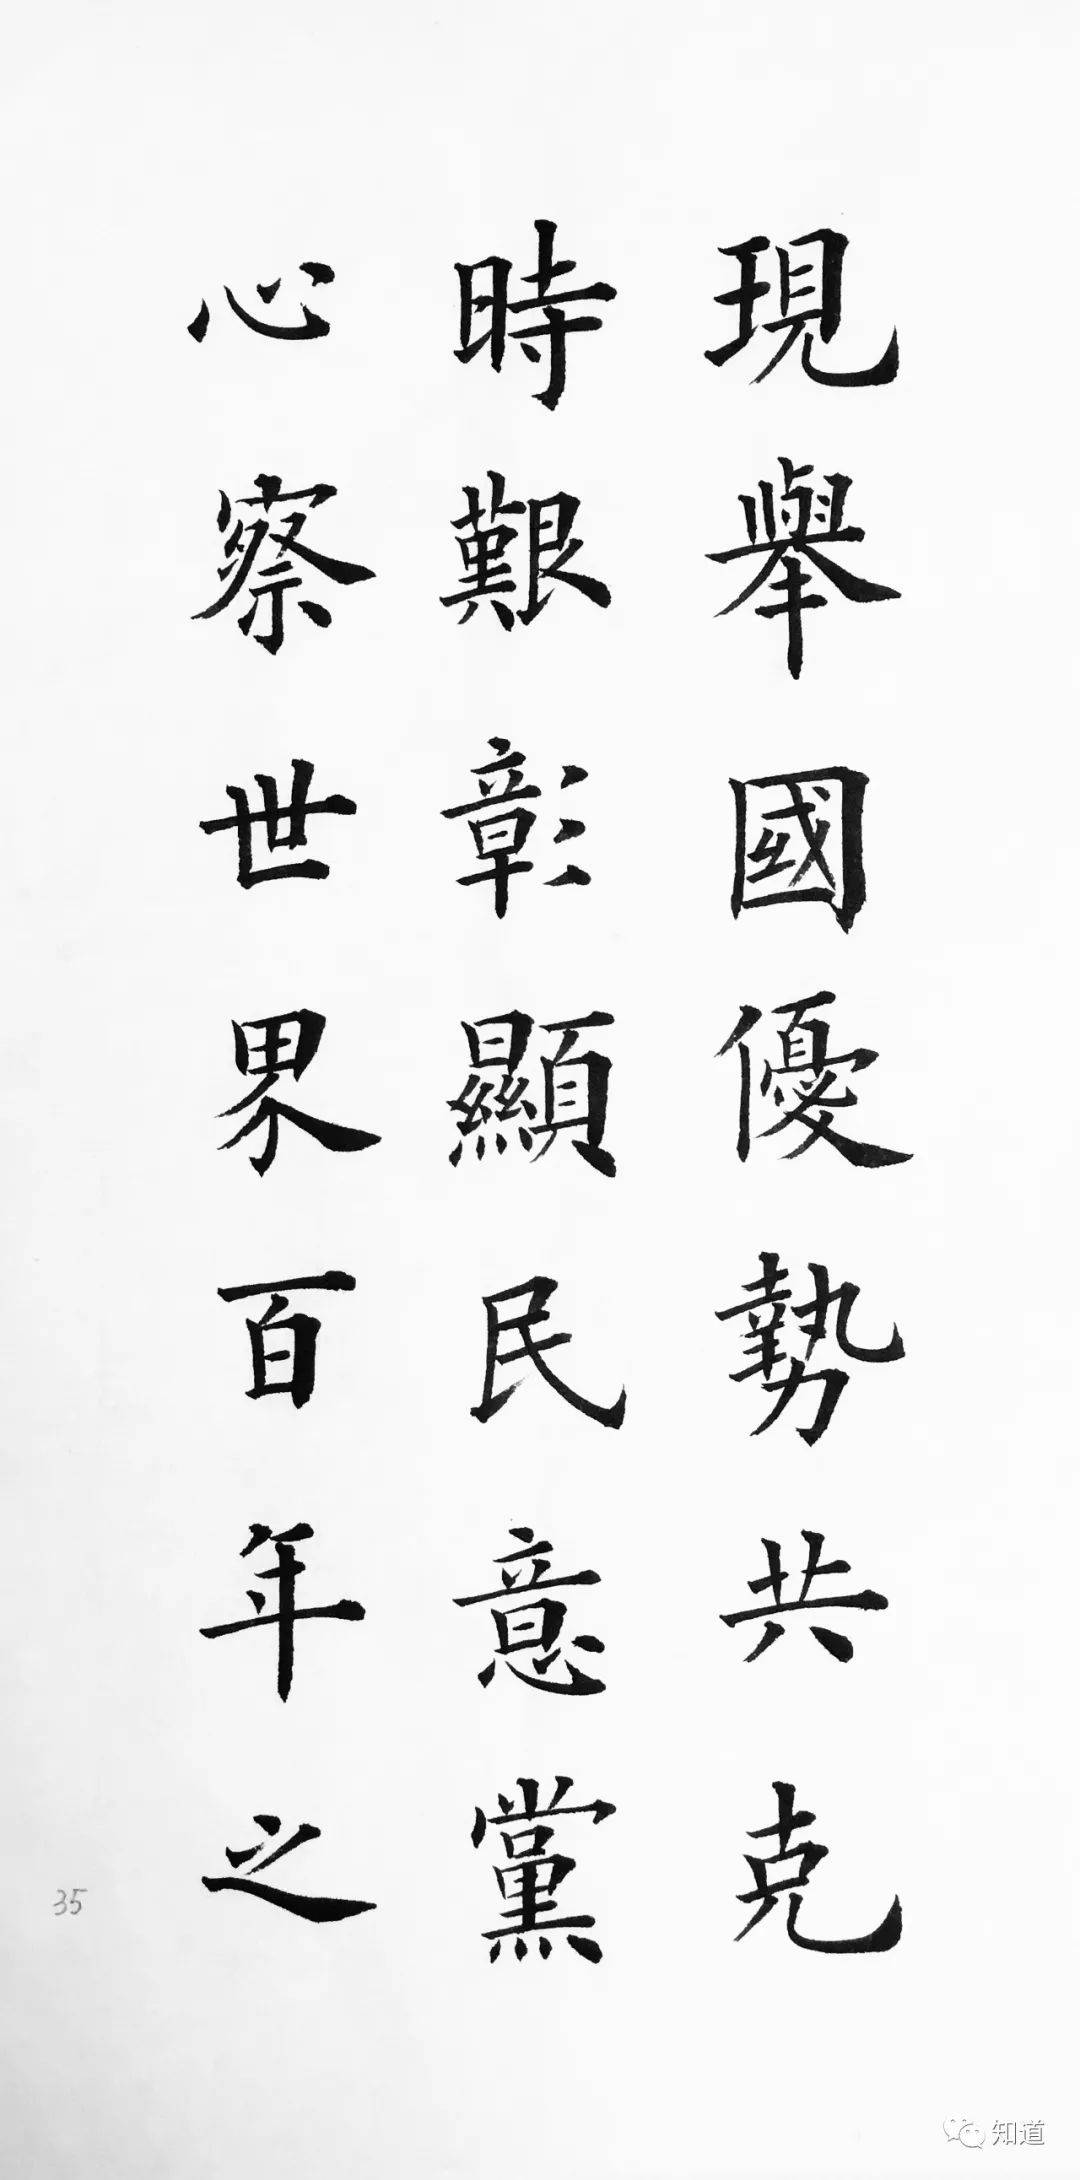 現舉國優勢共克
時艱彰顯民意黨
心察世界百年之
35
知道